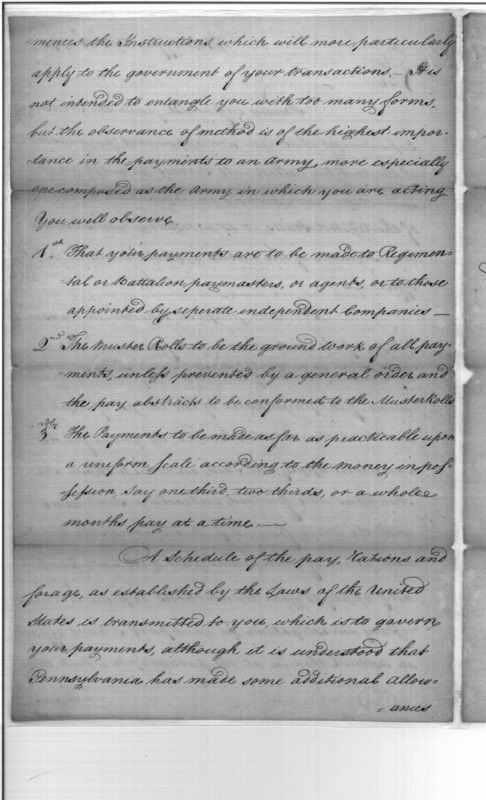 mences the Instructions which will more particularly
apply to the government of your transactions. — It is
not intended to entangle you with too many forms,
but the observance of method is of the highest impor-
tance in the payments to an Army, more especially
one composed as the Army in which you are acting
You will observe.
1st That your payments are to be made to Regimen-
tal or Battalion paymasters, or agents, or to those
appointed by seperate independent Companies —
2nd The Muster Rolls to be the ground work of all pay-
ments, unless prevented by a general order and
the pay abstracts to be conformed to the Muster Rolls
3dly The Payments to be made as far as practicable upon
a uniform scale according to the money in pos-
session, say one third, two thirds, or a whole
months pay at a time. —
A schedule of the pay, rations and
forage, as established by the Laws of the United
States is transmitted to you, which is to govern
your payments, although it is understood that
Pennsylvania has made some additional allow-
=ances